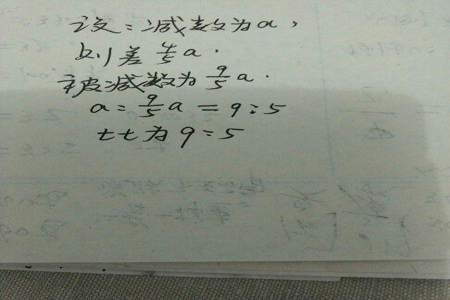 设：减数为a，
则差4/5a.
被减数为9/5a.
a=9/5a=9:5
比为9:5